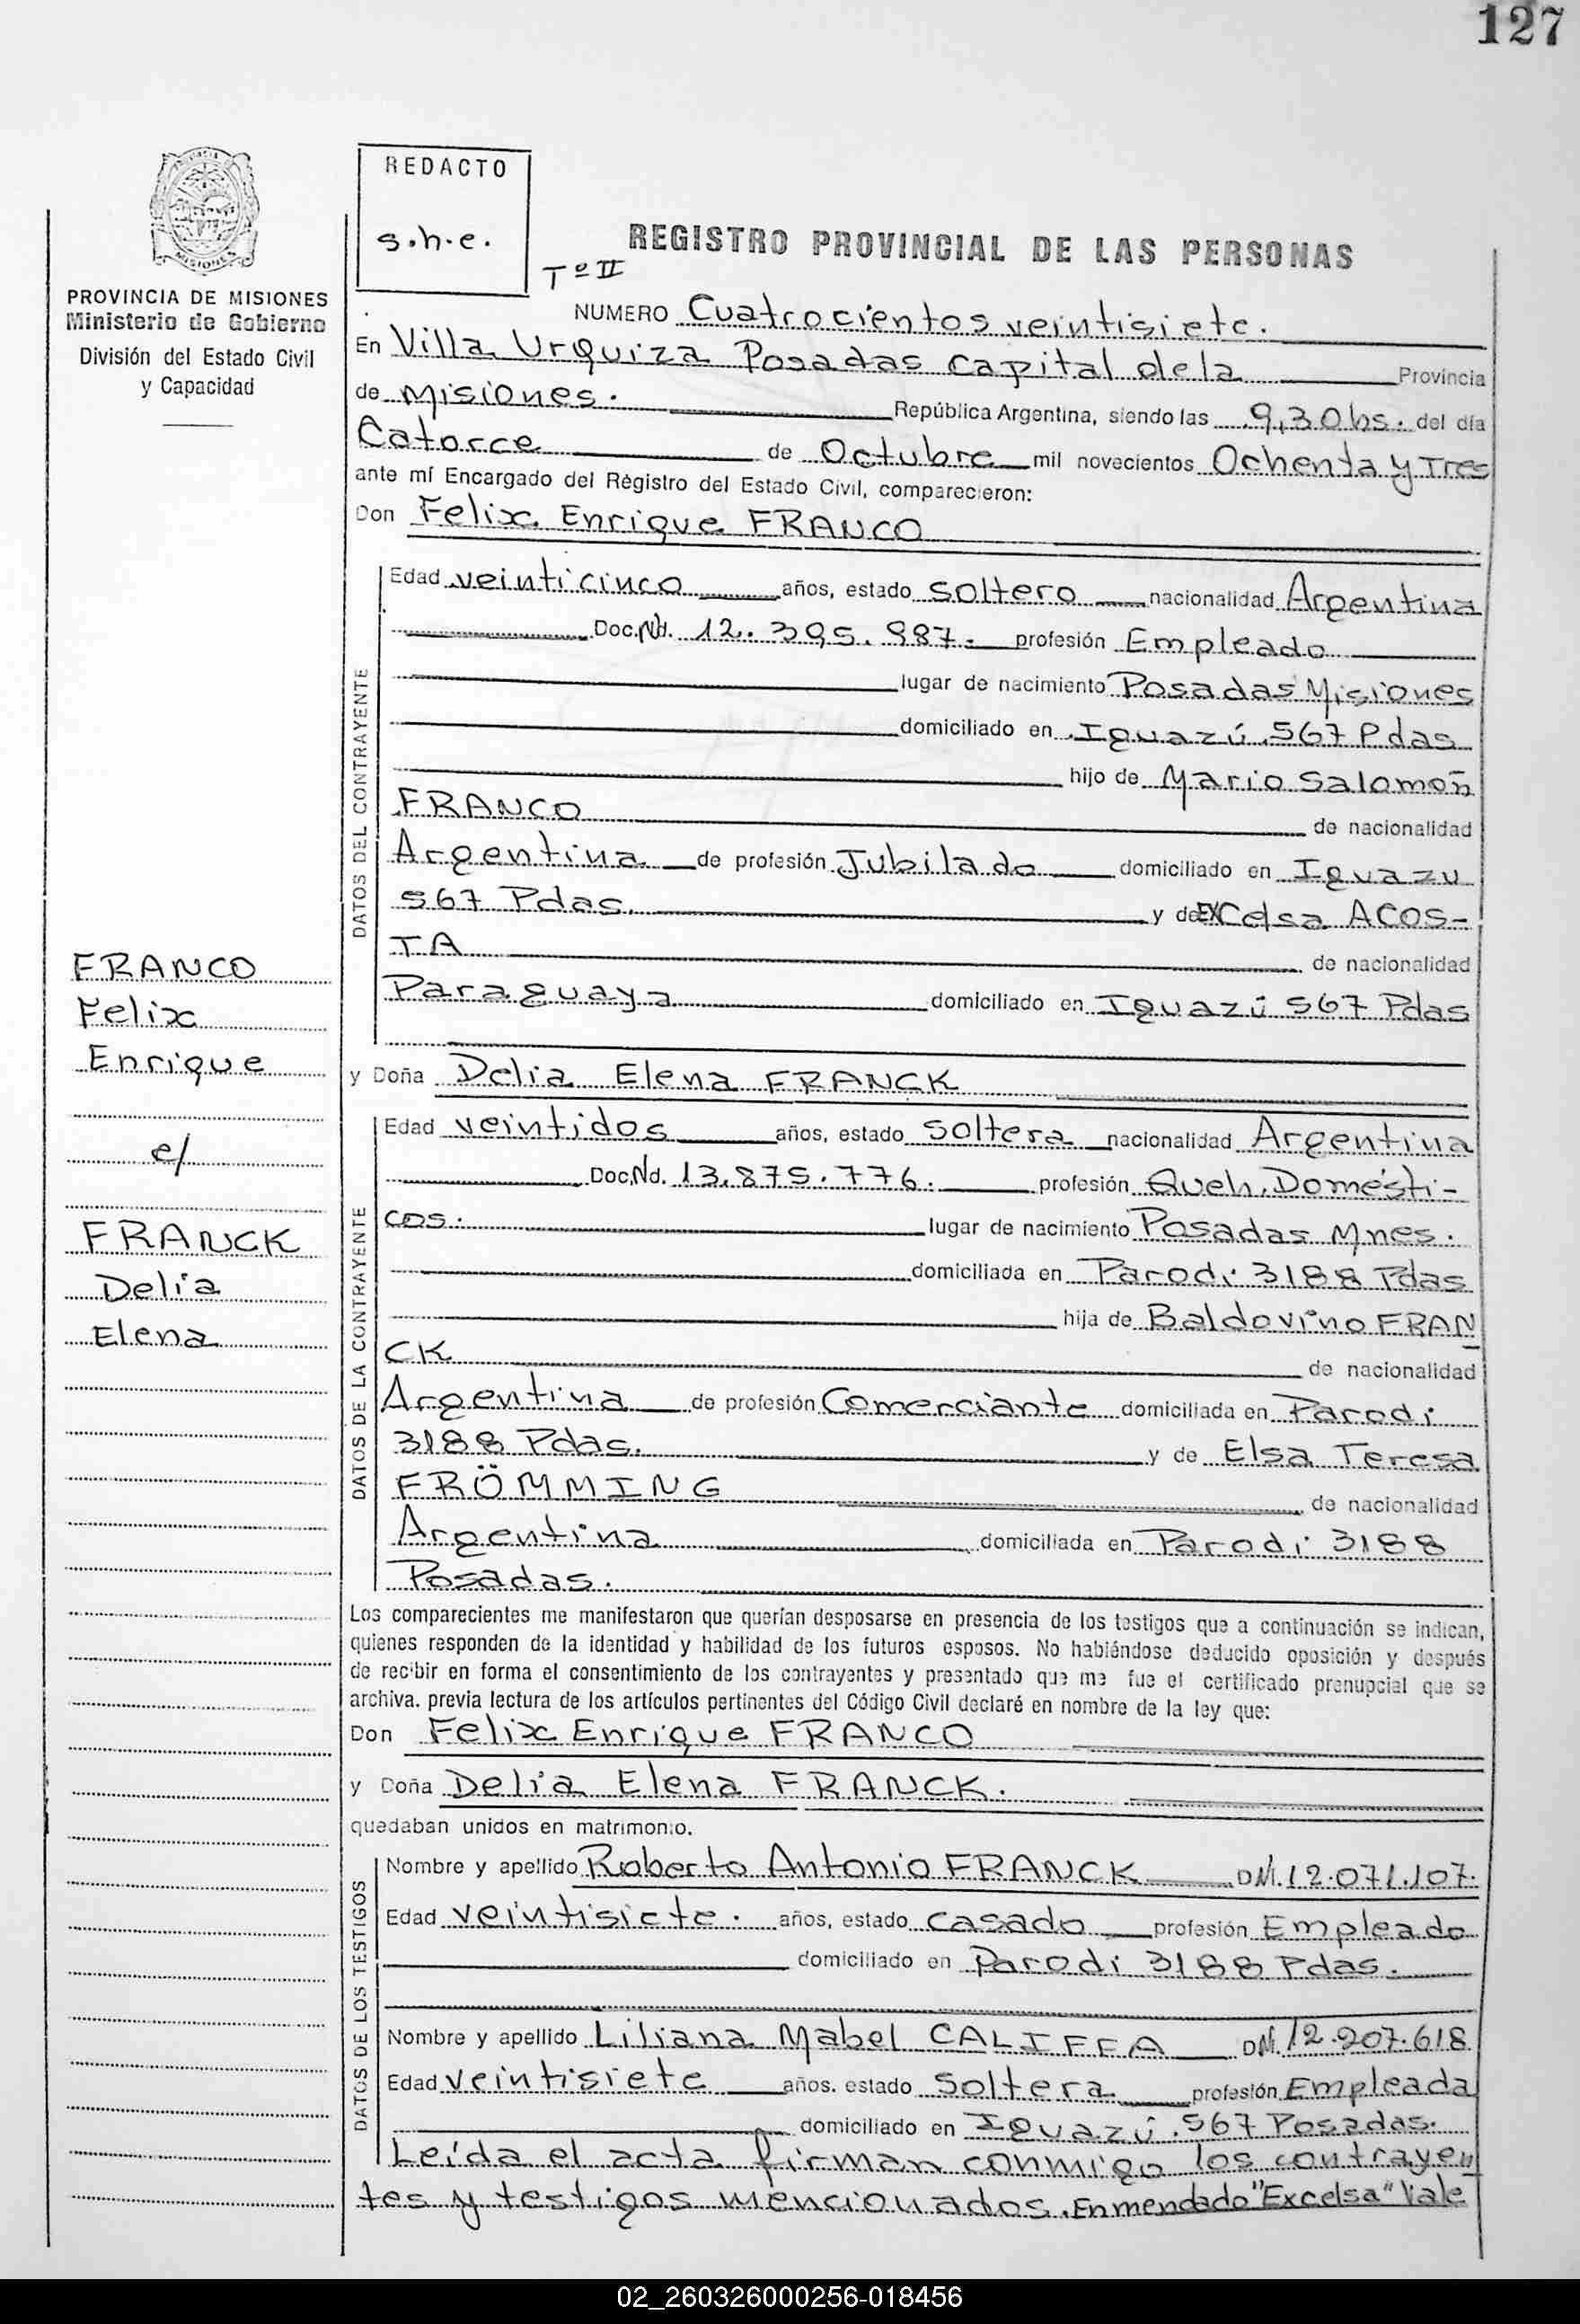 127
REDACTO
s.h.e.
REGISTRO PROVINCIAL DE LAS PERSONAS
Tº II
MISIONES
PROVINCIA DE MISIONES
Ministerio de Gobierno
División del Estado Civil
y Capacidad
NUMERO Cuatrocientos veintisiete.
En Villa Urquiza Posadas Capital dela Provincia
de Misiones. República Argentina, siendo las 9,30 hs. del día
Catorce de Octubre mil novecientos Ochenta y Tres
ante mí Encargado del Registro del Estado Civil, comparecieron:
Don Felix Enrique FRANCO
DATOS DEL CONTRAYENTE
Edad veinticinco años, estado soltero nacionalidad Argentina
Doc.Nd. 12.395.987. profesión Empleado
lugar de nacimiento Posadas Misiones
domiciliado en Iguazú 567 Pdas
hijo de Mario Salomón
FRANCO de nacionalidad
Argentina de profesión Jubilado domiciliado en Iguazu
567 Pdas. y de EXCelsa ACOS-
TA de nacionalidad
Paraguaya domiciliado en Iguazú 567 Pdas
y Doña Delia Elena FRANCK
FRANCO
Felix
Enrique
c/
FRANCK
Delia
Elena
DATOS DE LA CONTRAYENTE
Edad veintidos años, estado soltera nacionalidad Argentina
Doc.Nd. 13.875.776. profesión Queh. Domésti-
cos. lugar de nacimiento Posadas Mnes.
domiciliada en Parodi 3188 Pdas
hija de Baldovino FRAN
CK de nacionalidad
Argentina de profesión Comerciante domiciliada en Parodi
3188 Pdas. y de Elsa Teresa
FRÖMMING de nacionalidad
Argentina domiciliada en Parodi 3188
Posadas.
Los comparecientes me manifestaron que querían desposarse en presencia de los testigos que a continuación se indican,
quienes responden de la identidad y habilidad de los futuros esposos. No habiéndose deducido oposición y después
de recibir en forma el consentimiento de los contrayentes y presentado que me fue el certificado prenupcial que se
archiva. previa lectura de los artículos pertinentes del Código Civil declaré en nombre de la ley que:
Don Felix Enrique FRANCO
y Doña Delia Elena FRANCK.
quedaban unidos en matrimonio.
DATOS DE LOS TESTIGOS
Nombre y apellido Roberto Antonio FRANCK DNI. 12.071.107.
Edad veintisiete. años, estado casado profesión Empleado
domiciliado en Parodi 3188 Pdas.
Nombre y apellido Liliana Mabel CALIFFA DNI. 12.207.618
Edad veintisiete años. estado soltera profesión Empleada
domiciliado en Iguazú 567 Posadas.
Leída el acta firman conmigo los contrayen
tes y testigos mencionados. Enmendado "Excelsa" Vale
02_260326000256-018456